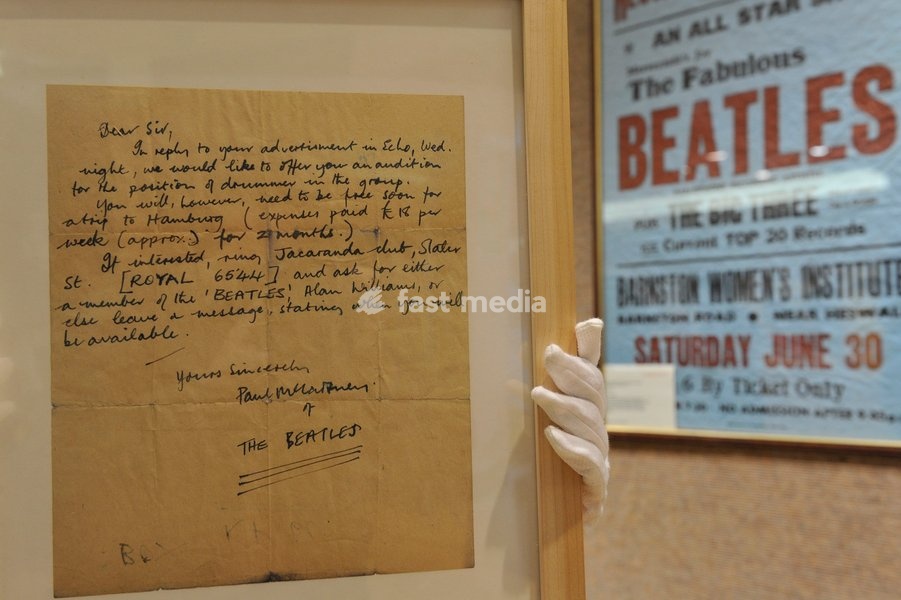 Dear Sir,
In reply to your advertisment in Echo, Wed.
night, we would like to offer you an audition
for the position of drummer in the group.
You will, however, need to be free soon for
a trip to Hamburg (expenses paid £18 per
week (approx.) for 2 months.)
If interested, ring Jacaranda club, Slater
St. [ROYAL 6544] and ask for either
a member of the 'BEATLES', Alan Williams, or
else leave a message, stating when you will
be available.
Yours Sincerely
Paul McCartney.
of
THE BEATLES
fast media
AN ALL STAR
The Fabulous
BEATLES
THE BIG THREE
Current TOP 20 Records
BARNSTON WOMEN'S INSTITUTE
BARNSTON ROAD • NEAR HESWALL
SATURDAY JUNE 30
6 By Ticket Only
7.30 - NO ADMISSION AFTER